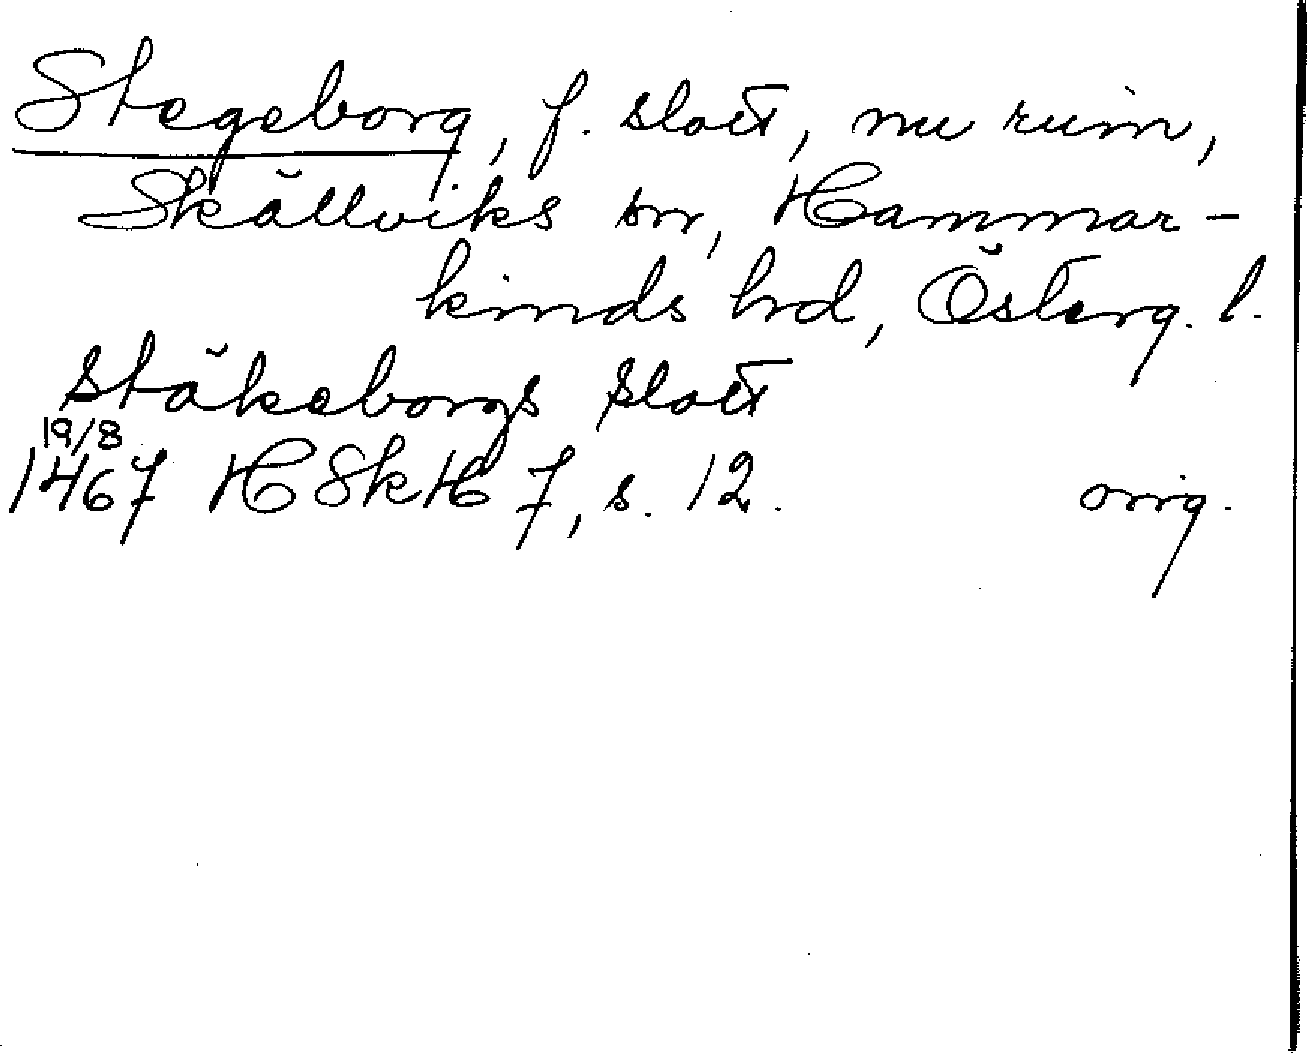 Stegeborg, f. slott, nu ruin,
Skällviks sn, Hammar-
kinds hd, Österg. l.
stäkeborgs slott
19/8
1467 HSkH 7, s. 12. orig.